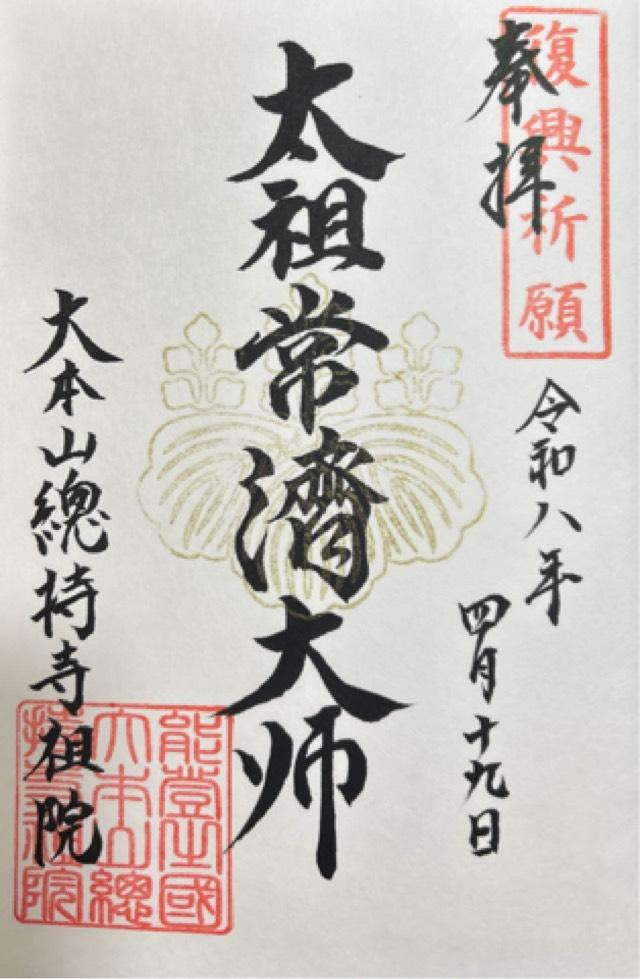 復興祈願
奉拝
令和八年
四月十九日
太祖常濟大师
大本山總持寺祖院
能登國
大本山總
持寺祖院